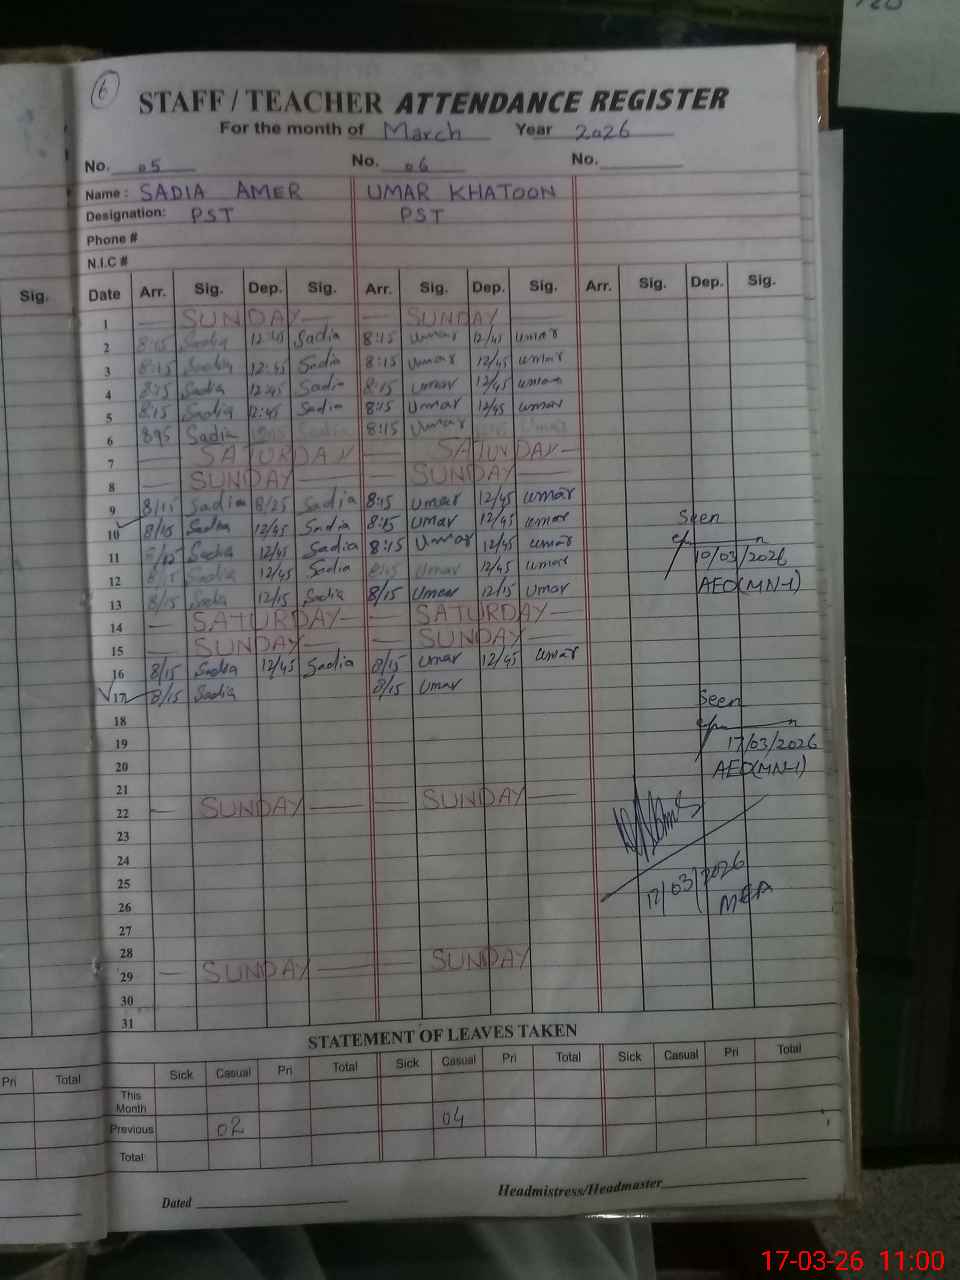 6
STAFF / TEACHER ATTENDANCE REGISTER
For the month of March Year 2026
No. 05 No. 06 No.
Name : SADIA AMER UMAR KHATOON
Designation: PST PST
Phone #
N.I.C #
Sig. Date Arr. Sig. Dep. Sig. Arr. Sig. Dep. Sig. Arr. Sig. Dep. Sig.
1 — SUNDAY — — SUNDAY —
2 8:15 Sadia 12:45 Sadia 8:15 Umar 12/45 umar
3 8:15 Sadia 12:45 Sadia 8:15 Umar 12/45 umar
4 8:15 Sadia 12:45 Sadia 8:15 Umar 12/45 umar
5 8:15 Sadia 12:45 Sadia 8:15 Umar 12/45 umar
6 Sadia 8:15 Umar
7 — SATURDAY — SATURDAY —
8 — SUNDAY — — SUNDAY —
9 8/15 Sadia 8/25 Sadia 8:15 Umar 12/45 umar
10 8/15 Sadia 12/45 Sadia 8:15 Umar 12/45 umar
11 Sadia 12/45 Sadia 8:15 Umar 12/45 umar
12 8/15 Sadia 12/45 Sadia 8:15 Umar 12/45 umar
13 8/15 Sadia 12/15 Sadia 8/15 Umar 12/15 Umar
14 — SATURDAY — — SATURDAY —
15 — SUNDAY — — SUNDAY —
16 8/15 Sadia 12/45 Sadia 8/15 Umar 12/45 umar
17 8/15 Sadia 8/15 Umar
18
19
20
21
22 — SUNDAY — — SUNDAY —
23
24
25
26
27
28
29 — SUNDAY — — SUNDAY
30
31
Seen
10/03/2026
AEO(MN-1)
Seen
17/03/2026
AEO(MN-1)
17/03/2026
MEA
STATEMENT OF LEAVES TAKEN
Pri Total Sick Casual Pri Total Sick Casual Pri Total Sick Casual Pri Total
This Month
Previous 02 04
Total:
Dated Headmistress/Headmaster
17-03-26 11:00